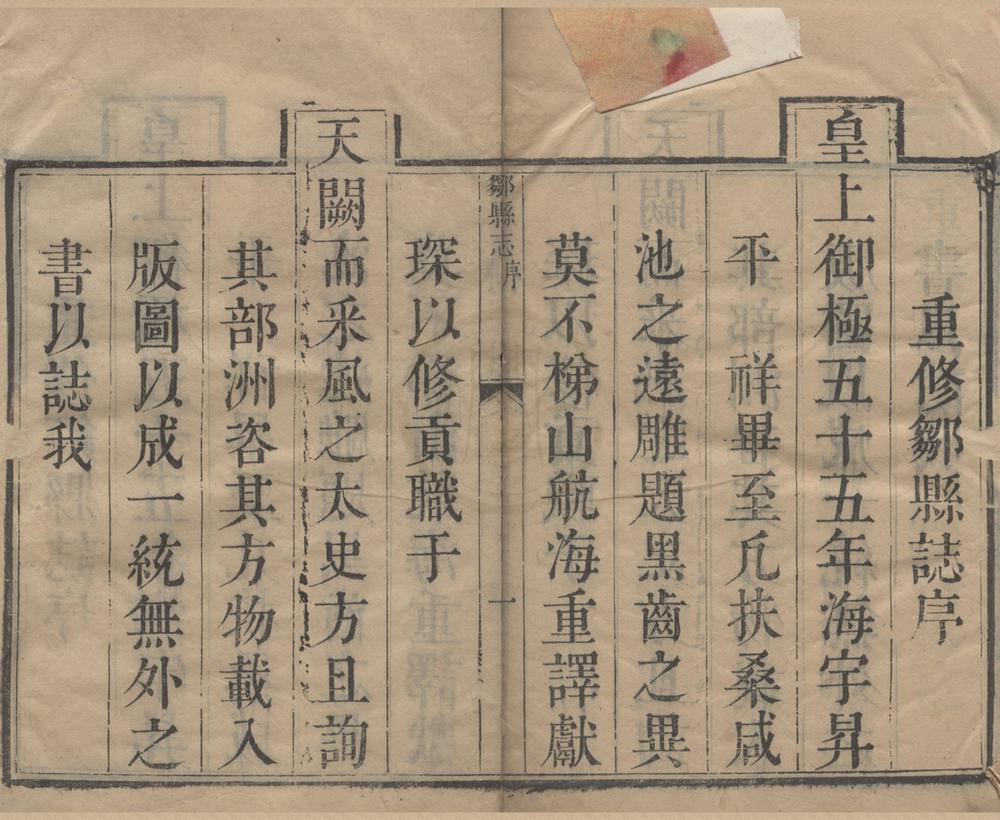 重修鄒縣誌序
皇上御極五十五年海宇昇
平 祥畢至凡扶桑咸
池之遠雕題黑齒之異
莫不梯山航海重譯獻
琛以修貢職于
天闕而采風之太史方且詢
其部洲咨其方物載入
版圖以成一統無外之
書以誌我
鄒縣志 序 一